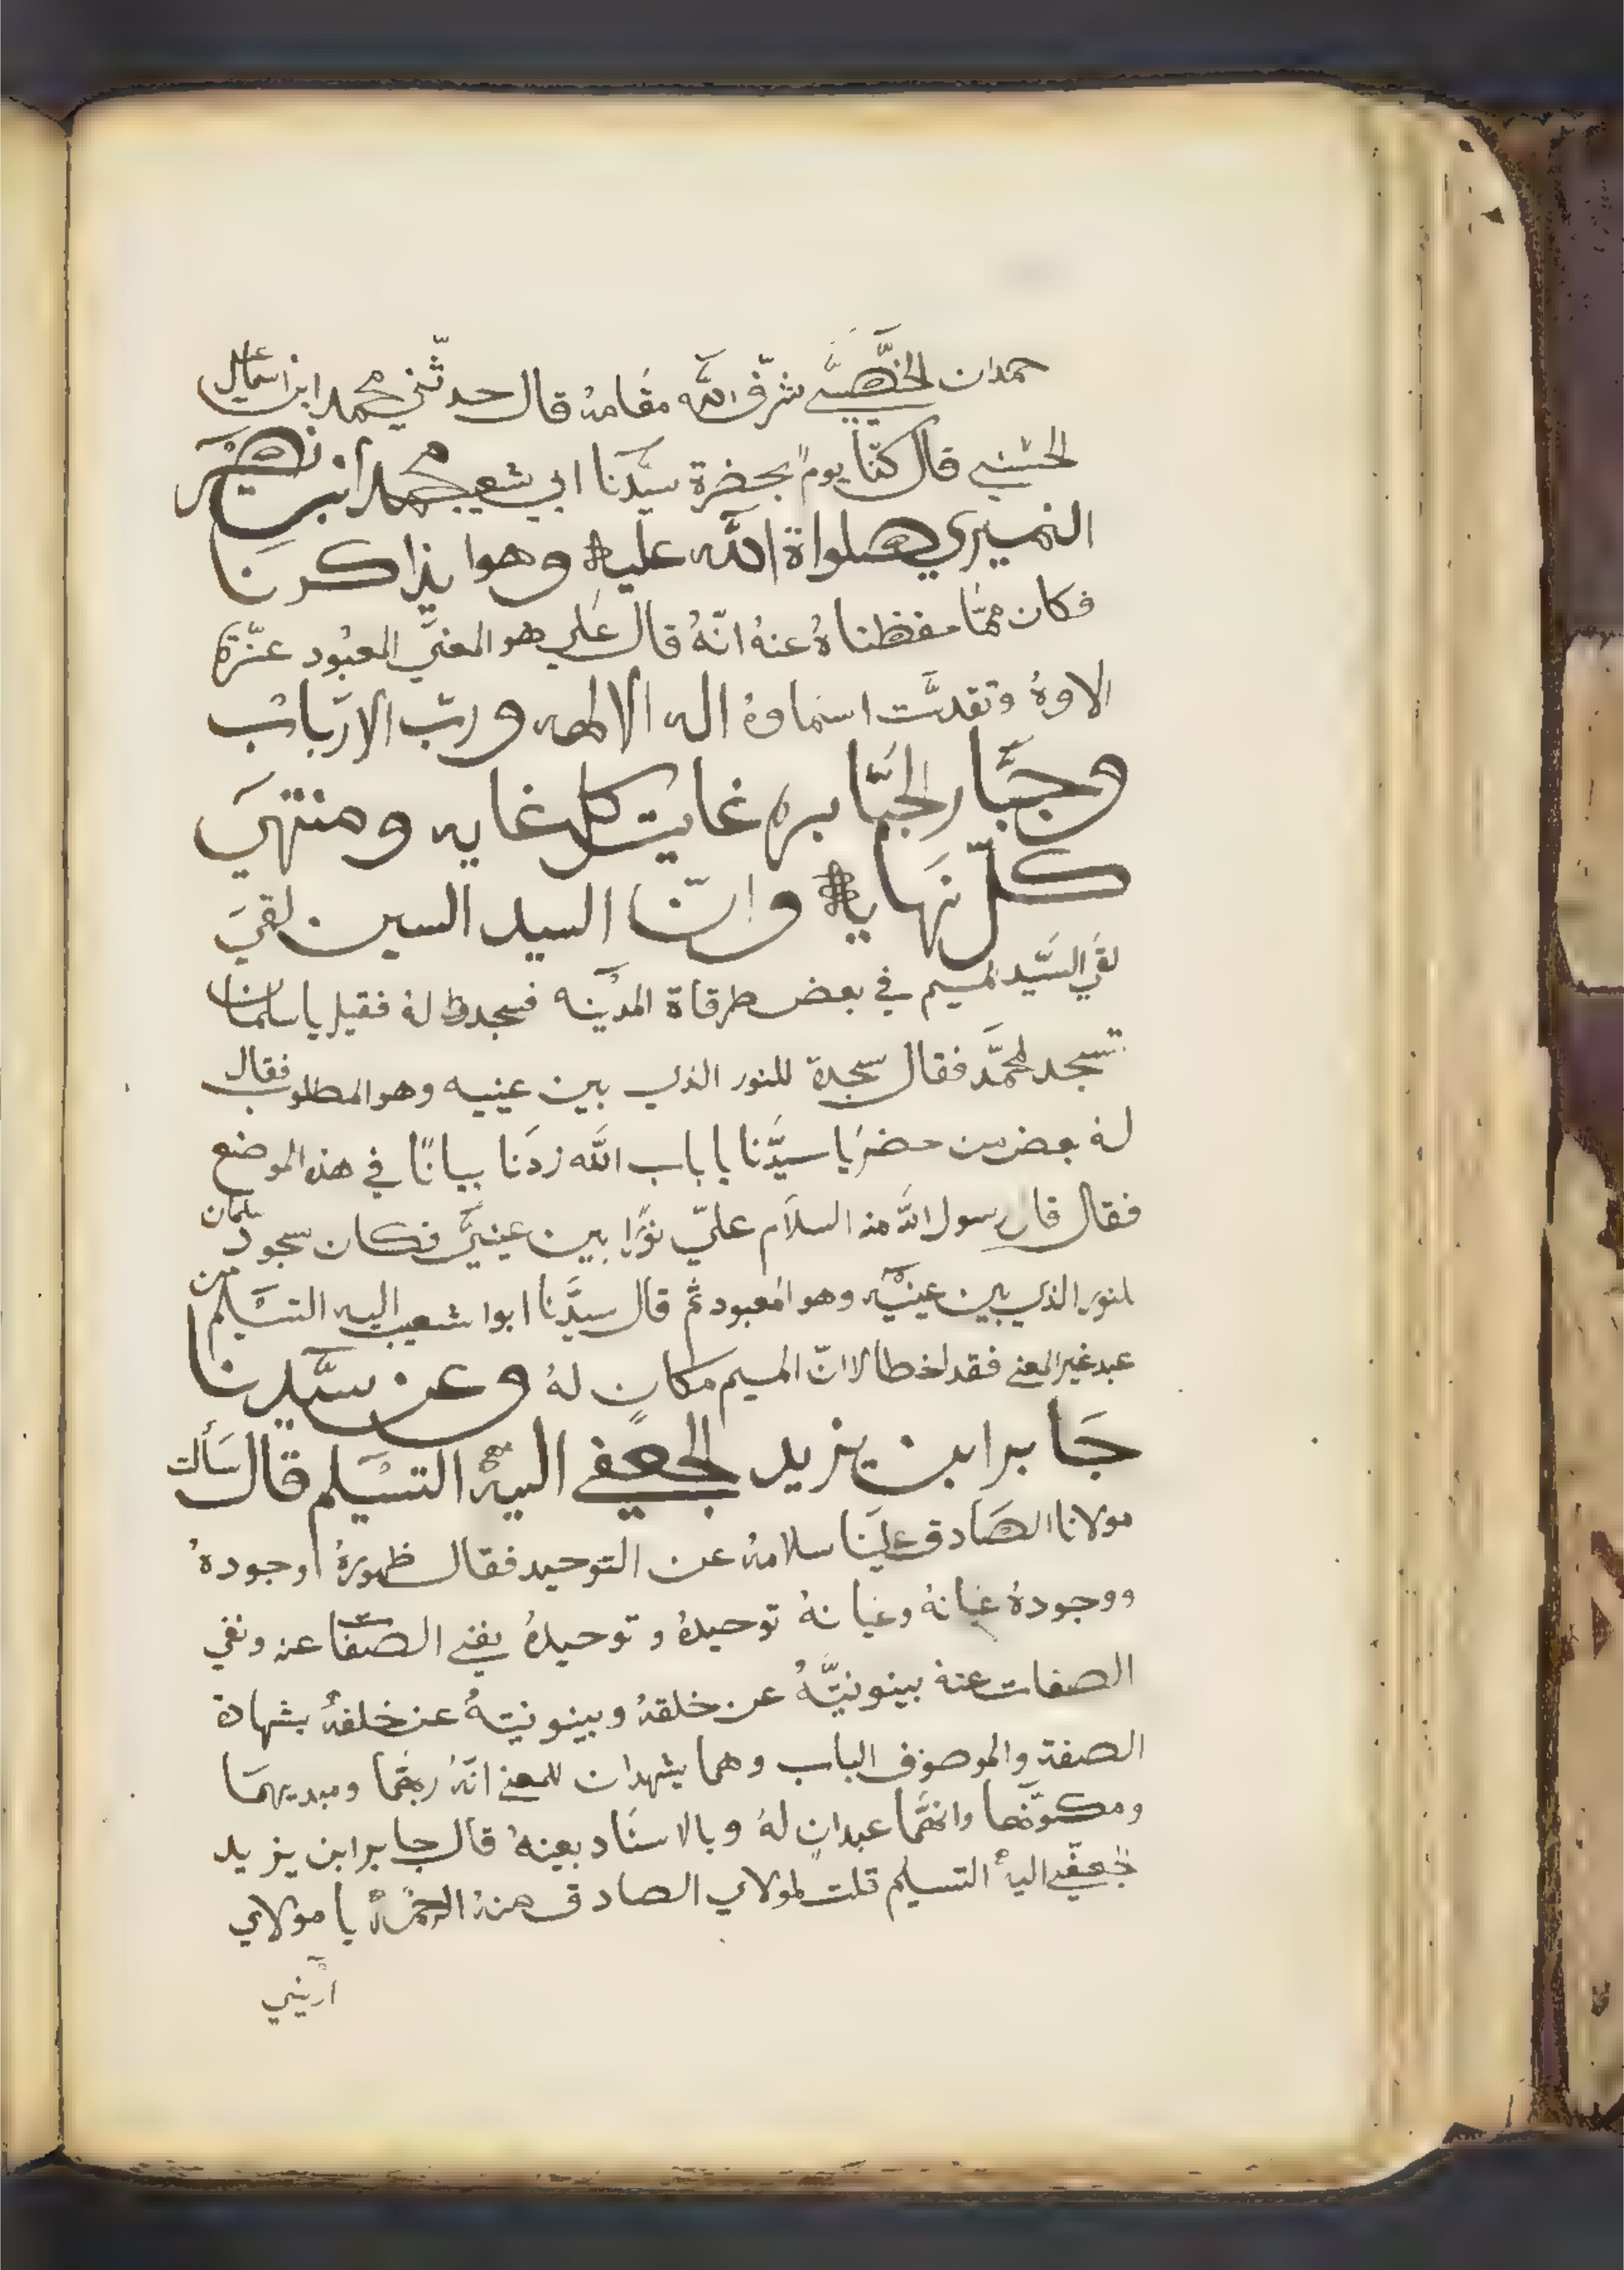 حمدان الخصَّيبي شرّف الله مقامهُ قال حدثّني محمد ابن اسماعيل
الحسَنِي قال كنّا يومًا بحضرة سيَّدنا ابي شعيب محمد ابن نصَير
النميري صلواة الله عليه وهوا يذاكرنا
فكان ممَّا حفظناهُ عنهُ انّهُ قال عَلي هو المعنيَ المعبُود عزّة
الاوهُ وتقدسَّت اسماوهُ اله الالهه ورب الارباب
وجبَّار الجبَّابره غايت كل غايه ومنتهيَ
كلّ نهَايه وانّ السيد السين لقيَ
لقَي السَّيد لميم في بعض طرقاة المدَينه فسجد لهُ فقيل يا سلمان
تسجد لمحمَّد فقال سجدة للنور الذي بين عينيه وهو المطلوب فقال
لهُ بعض من حضر يا سيّدَنا يا باب الله زدَنا بيانًا في هذه الموضع
فقال قال رسول الله منه السلاَم عليّ نورًا بين عينيَّ فكان سجود سلمان
لنور الذي بين عينَيه وهو المعبود ثم قال سيدَّنا ابوا شعيب اليه التسَليم من
عبد غير المعنى فقد اخطا لانّ الميم مكان لهُ وعن سيَّدنا
جَابر ابن يزيد الجعفي اليهُ التسَليم قال سَألت
مولانا الصَادق علينَا سلامهُ عن التوحيد فقال ظهورهُ وجودهُ
ووجودهُ عيانهُ وعيانهُ توحيدهُ وتوحيدهُ نفي الصفات عنه ونفي
الصفات عنهُ بينونيتَّهُ عن خلقهُ وبينونيتهُ عن خلقهُ بشهادة
الصفة والموصوف الباب وهما يشهدان للمعنى انّهُ ربهَّما ومبديهمَا
ومكوّنهَما وانهَّما عبدان لهُ وبالاسنَاد بعينهُ قال جابر ابن يزيد
لجعفي اليهُ التسليم قلت لمولاي الصادق منهُ الرحمَهُ يا مولاي
ارَيني